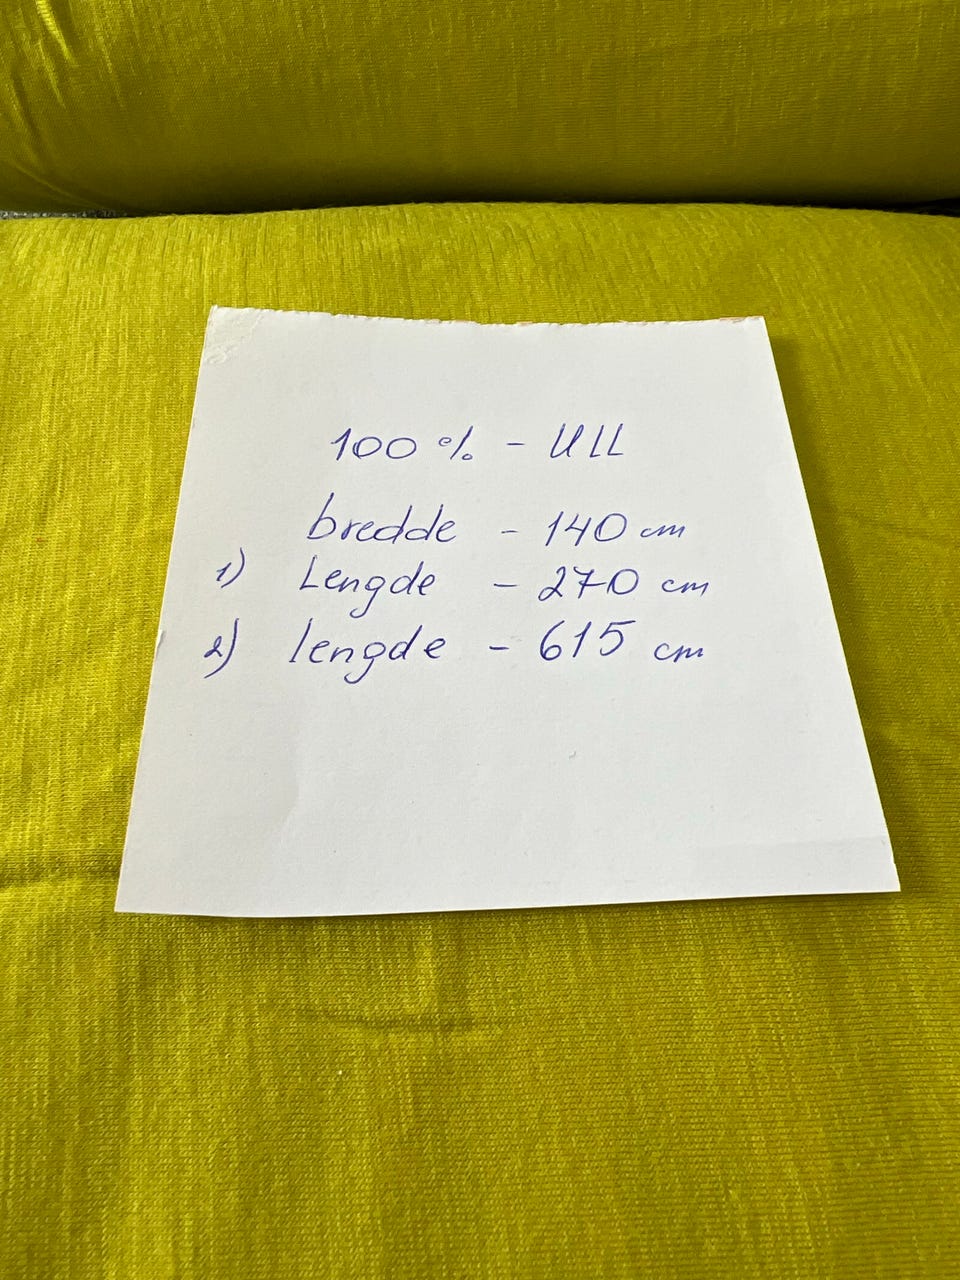 100 % - ULL
bredde - 140 cm
1) Lengde - 270 cm
2) lengde - 615 cm